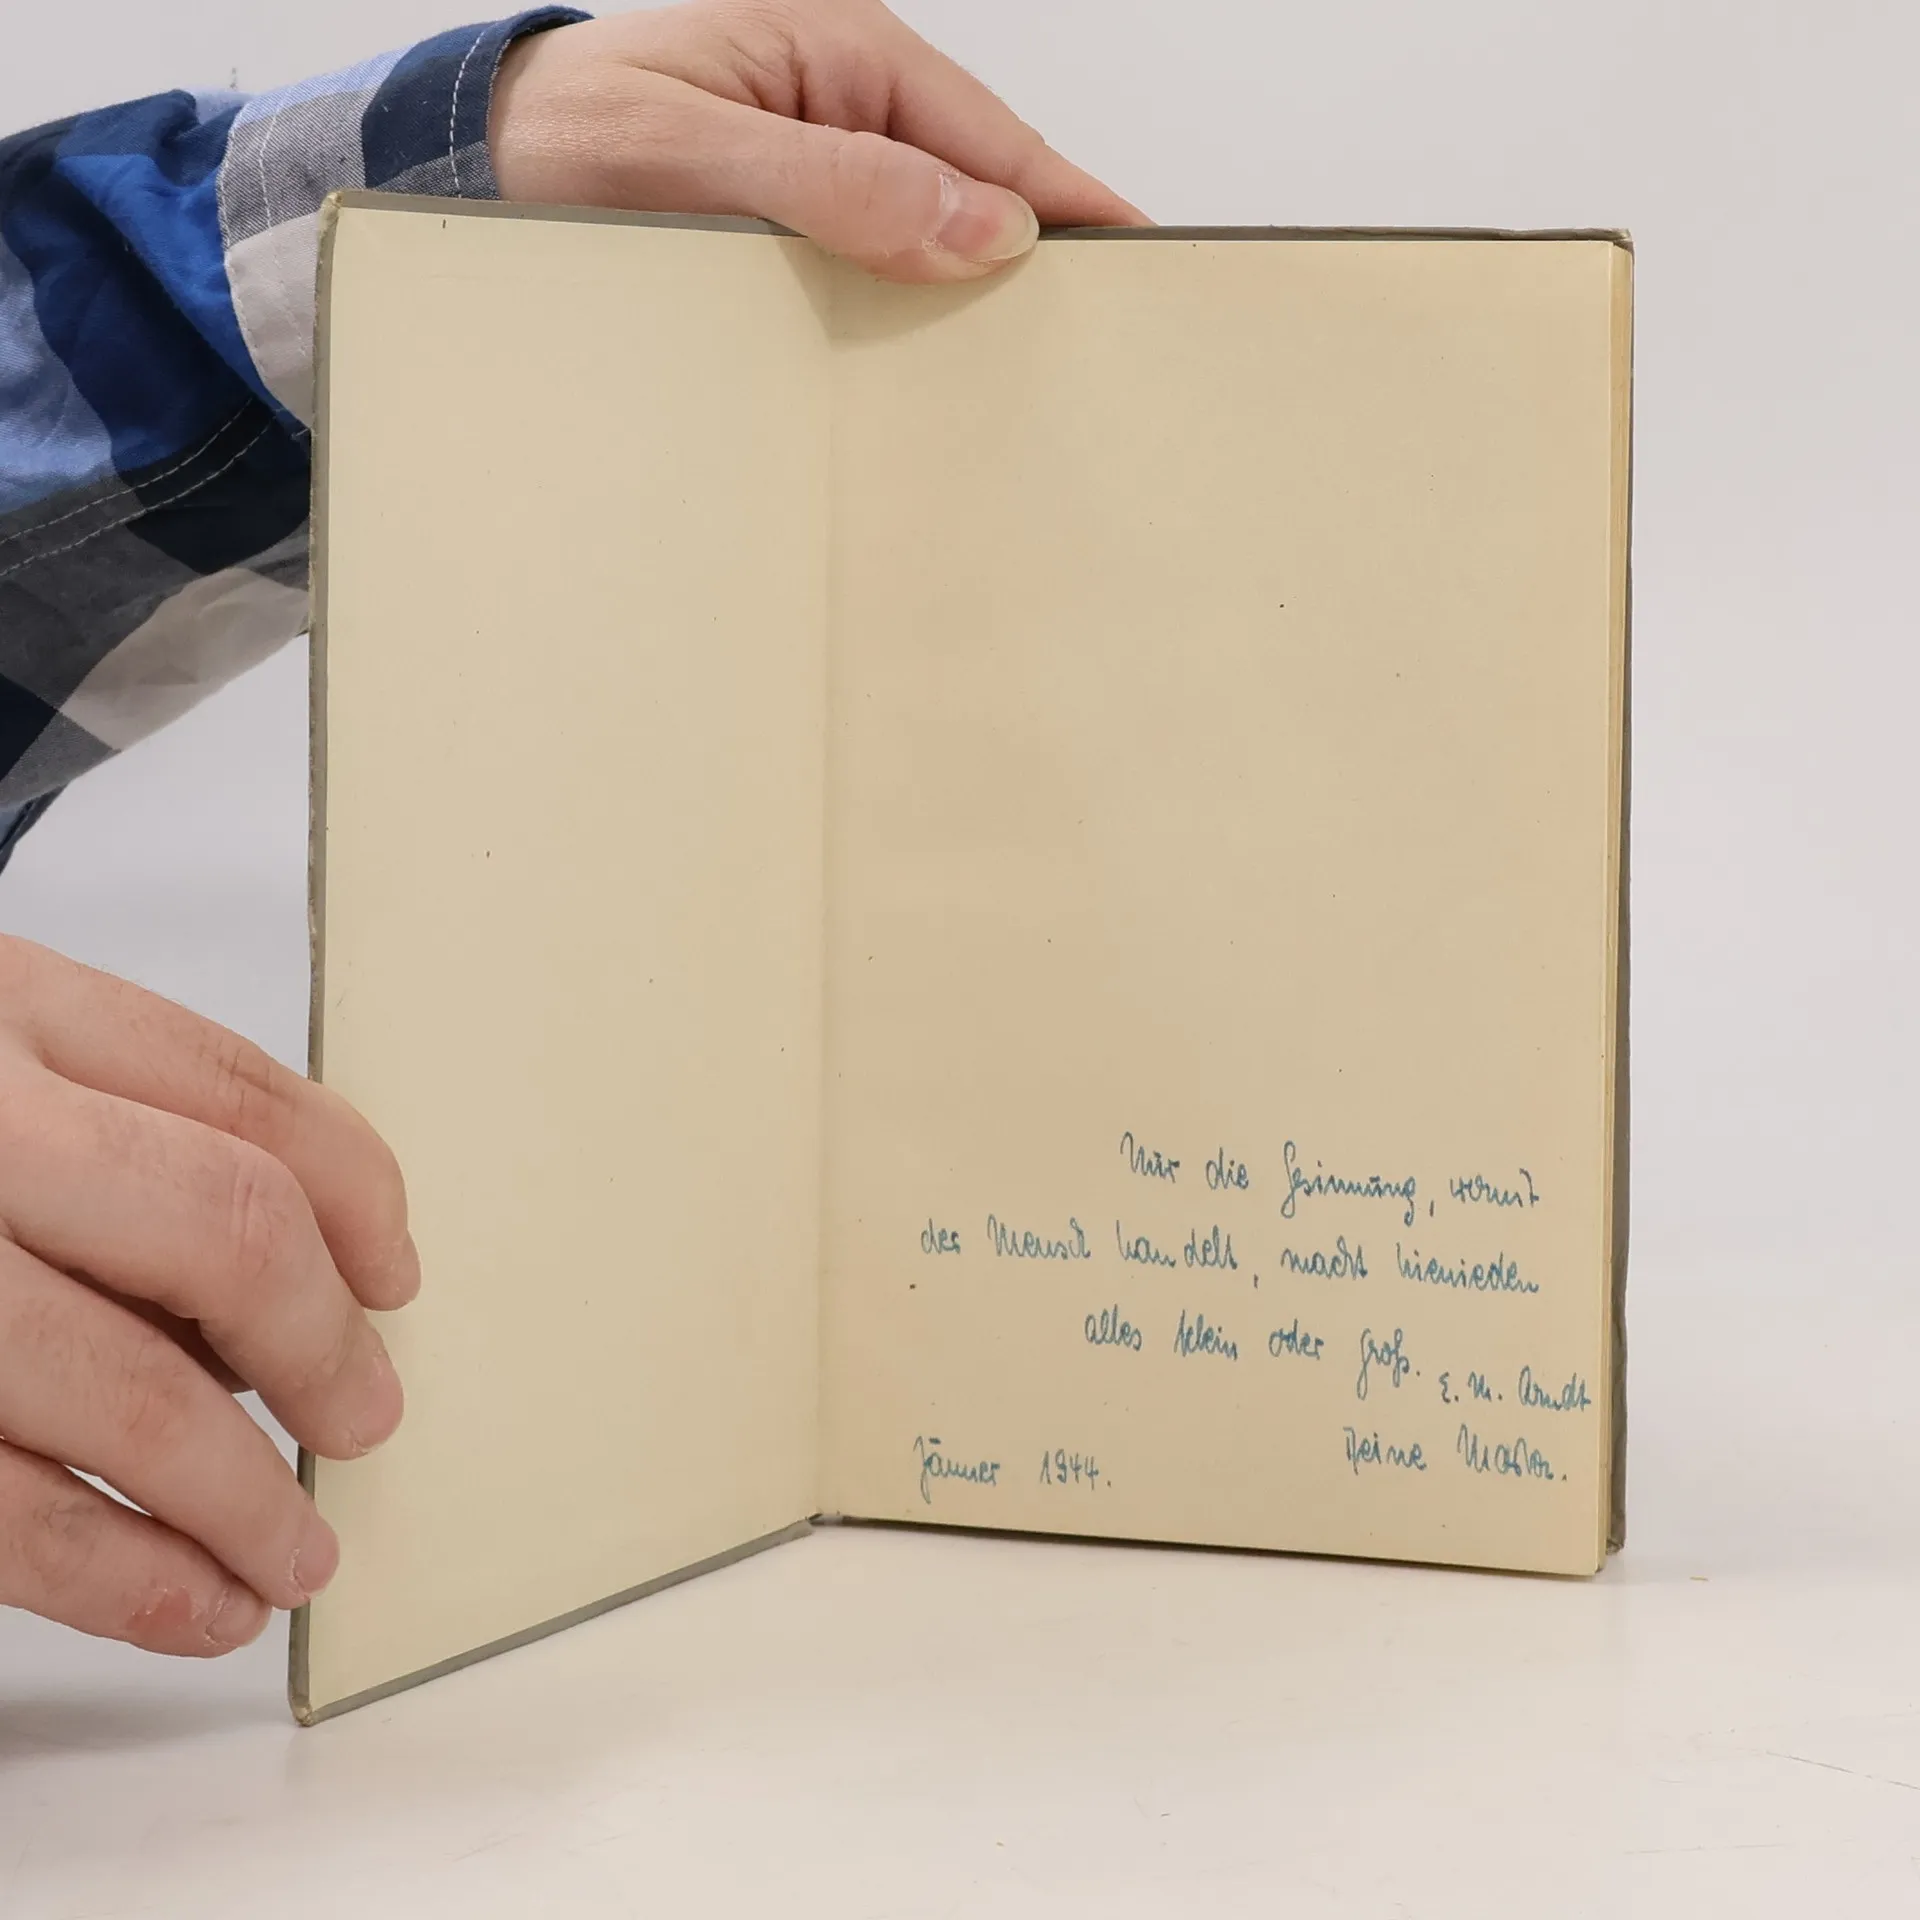 Nur die Gesinnung, womit
der Mensch handelt, macht hienieden
alles klein oder groß.
E. M. Arndt
Jänner 1944.